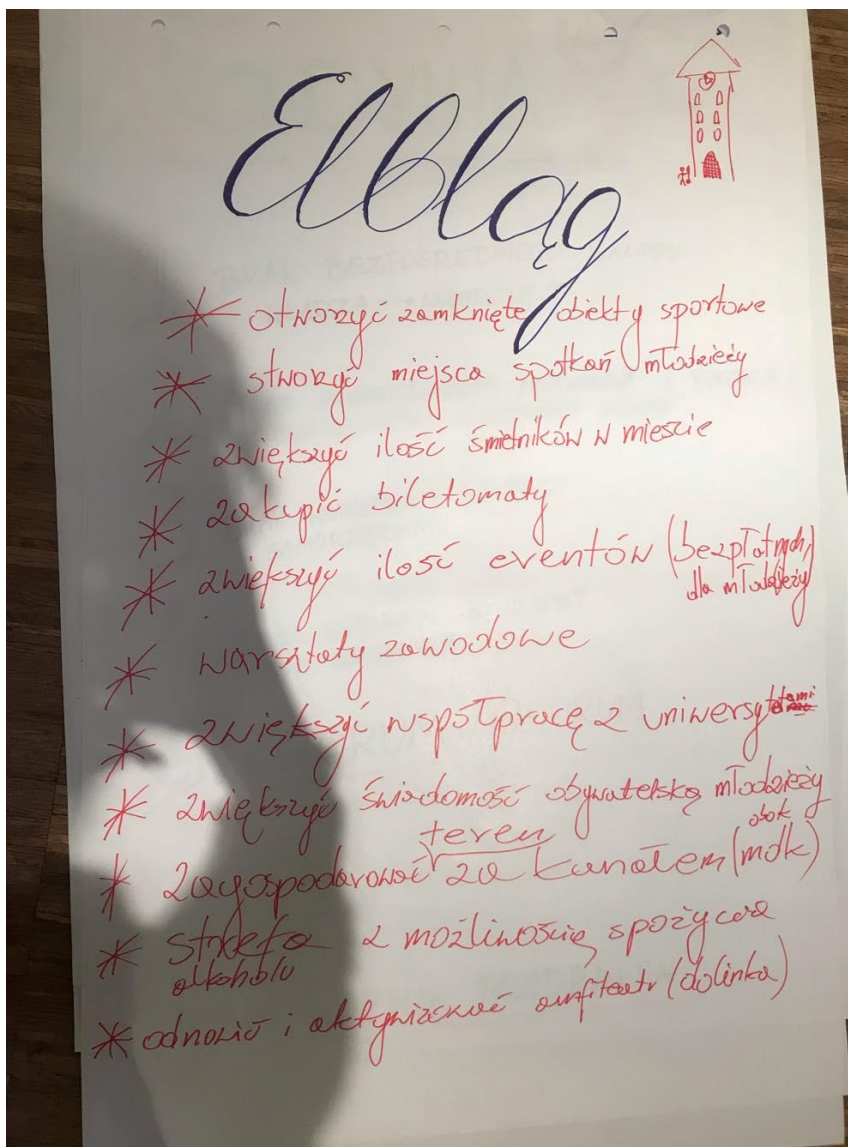 Elbląg
* otworzyć zamknięte obiekty sportowe
* stworzyć miejsca spotkań młodzieży
* zwiększyć ilość śmietników w mieście
* zakupić biletomaty
* zwiększyć ilość eventów (bezpłatnych,
dla młodzieży)
* warsztaty zawodowe
* zwiększyć współpracę z uniwersytetami
* zwiększyć świadomość obywatelską młodzieży
teren obok
* zagospodarować za kanałem (mdk)
* strefa z możliwością spożycia
alkoholu
* odnowić i aktywizować amfiteatr (dolinka)